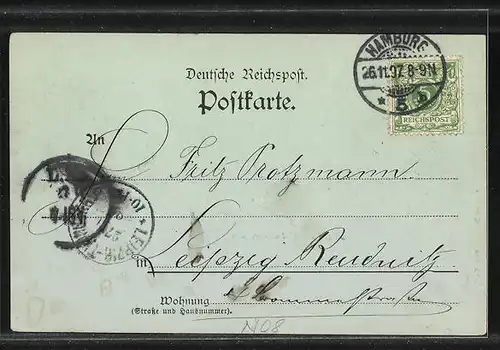 HAMBURG
26.11.97. 8-9N
* 5 b
5
REICHSPOST
Deutsche Reichspost.
Postkarte.
An
Fritz Protzmann
in Leipzig Reudnitz
Wohnung
(Straße und Hausnummer).
N08